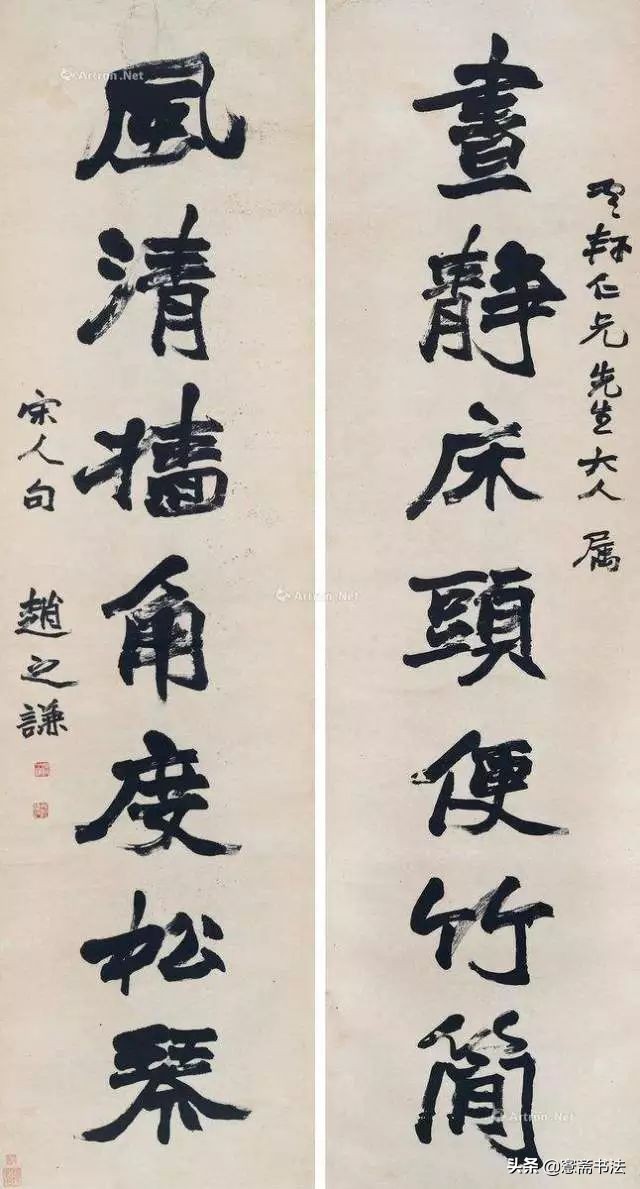 䨇軒仁兄先生大人 属
晝靜床頭便竹簡
風清牆角度松琴
宋人句 趙之謙
Artron.Net
Artron.Net
Artron.Net
头条 @愙斋书法